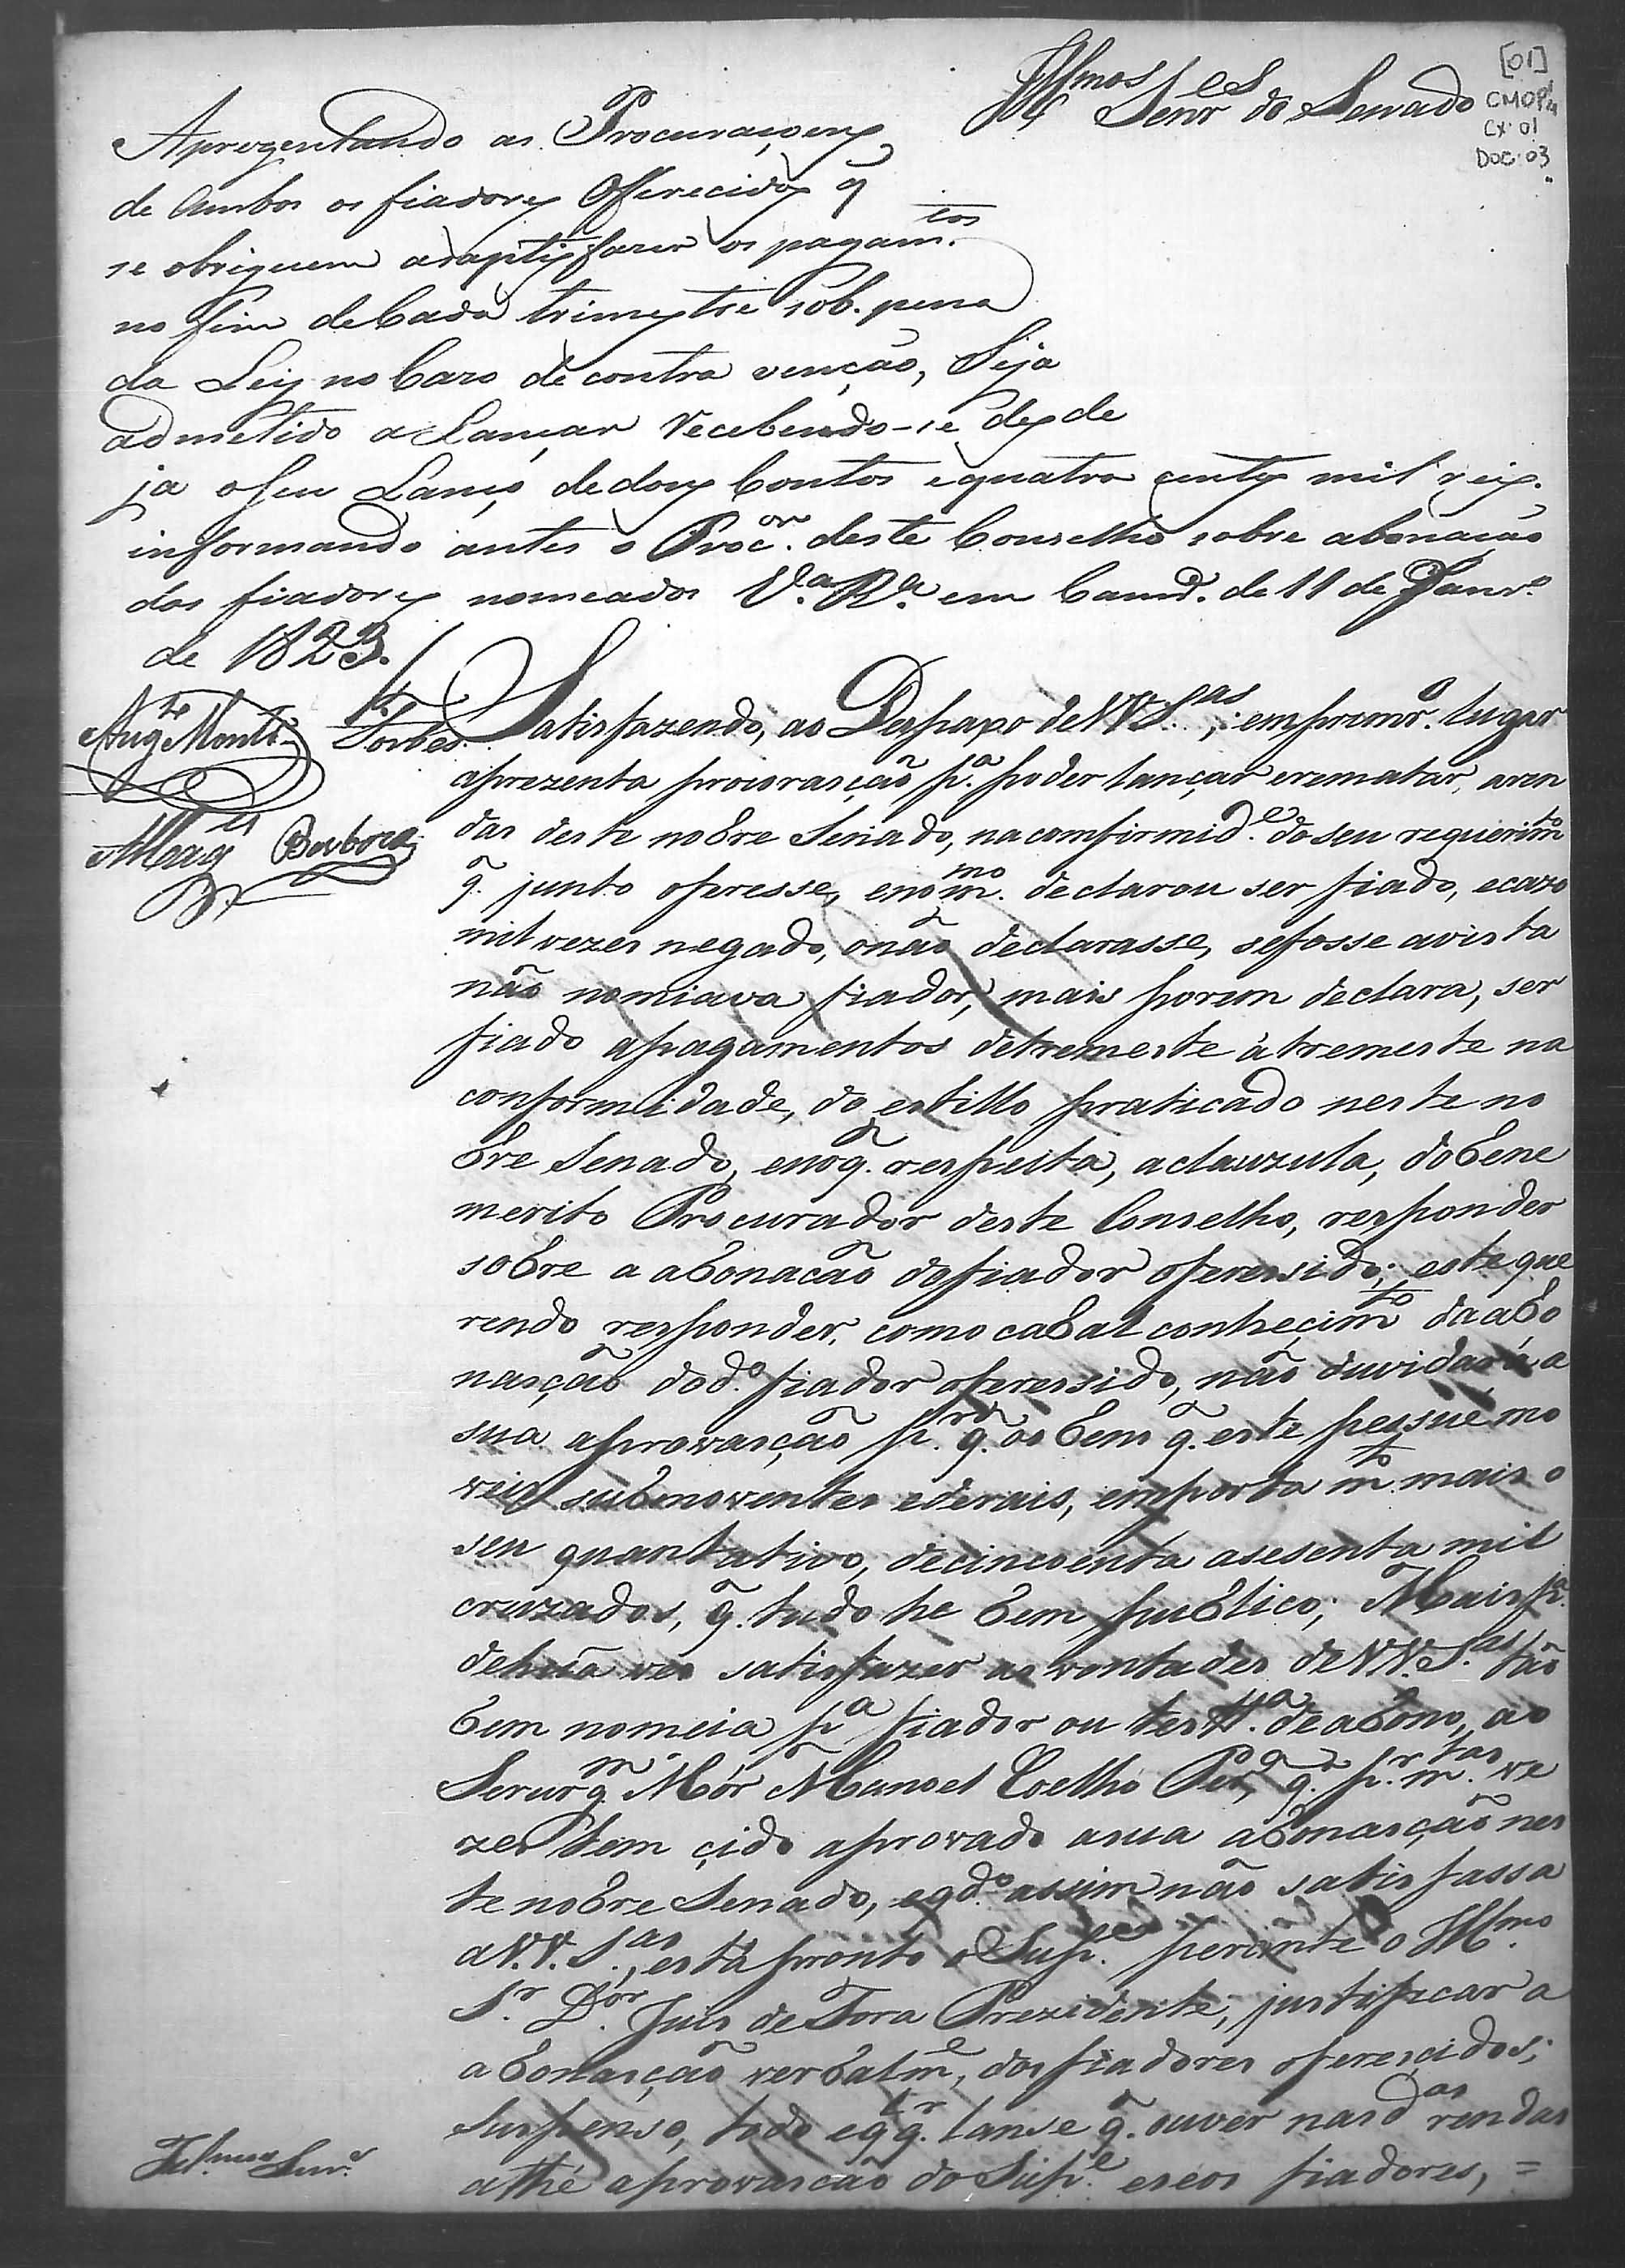 Illmos Senr.es do Senado
[01]
CMOP
CX. 01
DOC. 03
Aprezentando as Procuraçoens
de Ambos os fiadores Offerecidos q̃
se obriguem a satisfazer os pagam.tos
no fim de Cada trimestre sob. pena
da Ley no Cazo de contra venção, Seja
admetido a Lançar Recebendo-se desde
ja o seu Lanço de dous Contos e quatro centos mil reis.
informando antes o Proc.or deste Conselho sobre abonação
dos fiadores nomeados V.a R.a em Cam.a de 11 de Janr.o
de 1823.
Satisfazendo, ao Despaxo de VV S.as, em primr.o lugar
aprezenta procurasção p.a poder lançar erematar, aren
das deste nobre Senado, na comfirmid.e do seu requerim.to
q̃. junto oferesse, eno m.mo declarou ser fiado, ecazo
mil vezes negado, onão declarasse, sefosse avista
não nomiava fiador, mais porem declara, ser
fiado apagamentos detremeste àtremeste na
conformidade, do estillo praticado neste no
bre Senado, enoq̃. respeita, aclauzula, do bene
merito Procurador deste Conselho, responder
sobre a abonacão dofiador oferessido; este que
rendo responder, como cabal conhecim.to da abo
nasção dod.o fiador oferessido, não duvidará a
sua aprovasção p.r q̃. os bens q̃. este pessue mo
veis submoventes ederais, emporta m.to mais o
seu quantativo, decincoenta asesenta mil
cruzados, q̃. tudo he bem publico; Mais p.a
dehuã ves satisfazer as vontades de VV. S.as tão
bem nomeia p.a fiador ou test.a de abono, ao
Serurg.m Mór Manoel Coelho Per.a q̃. p.r m.tas ve
zes tem çido aprovado asua abonasção nes
te nobre Senado, eqd.o assim não satisfassa
aV.V. S.as, está pronto o Sup.e perante o Ill.mo
S.r D.or Juis de Fora Prezidente, justificar a
abonasção verbalm.e, dos fiadores oferescidos;
suspenso, todo eqq.r lanse q̃. ouver nas d.as rendas
athé aprovascão do Sup.e eseos fiadores, =
Barboza